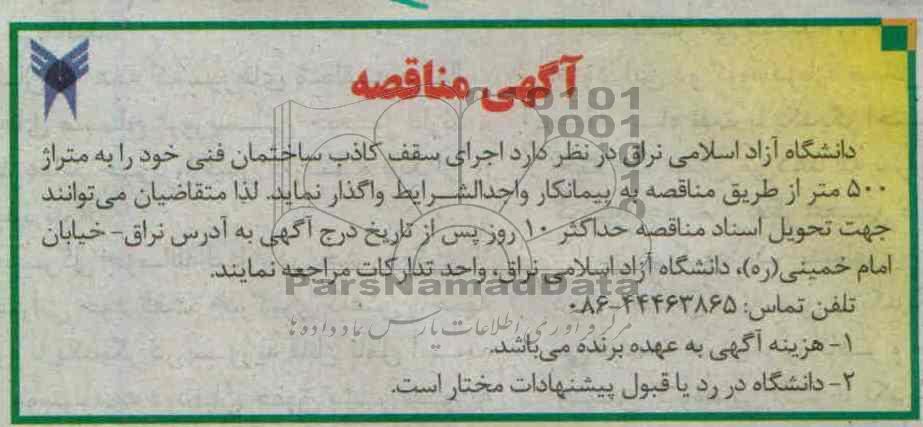 آگهی مناقصه
دانشگاه آزاد اسلامی نراق در نظر دارد اجرای سقف کاذب ساختمان فنی خود را به متراژ
۵۰۰ متر از طریق مناقصه به پیمانکار واجدالشرایط واگذار نماید. لذا متقاضیان می‌توانند
جهت تحویل اسناد مناقصه حداکثر ۱۰ روز پس از تاریخ درج آگهی به آدرس نراق- خیابان
امام خمینی(ره)، دانشگاه آزاد اسلامی نراق، واحد تدارکات مراجعه نمایند.
ParsNamadData
تلفن تماس: ۴۴۴۶۳۸۶۵-۰۸۶
مرکز و آوری اطلاعات پارس نماد داده ها
۱- هزینه آگهی به عهده برنده می‌باشد.
۲- دانشگاه در رد یا قبول پیشنهادات مختار است.